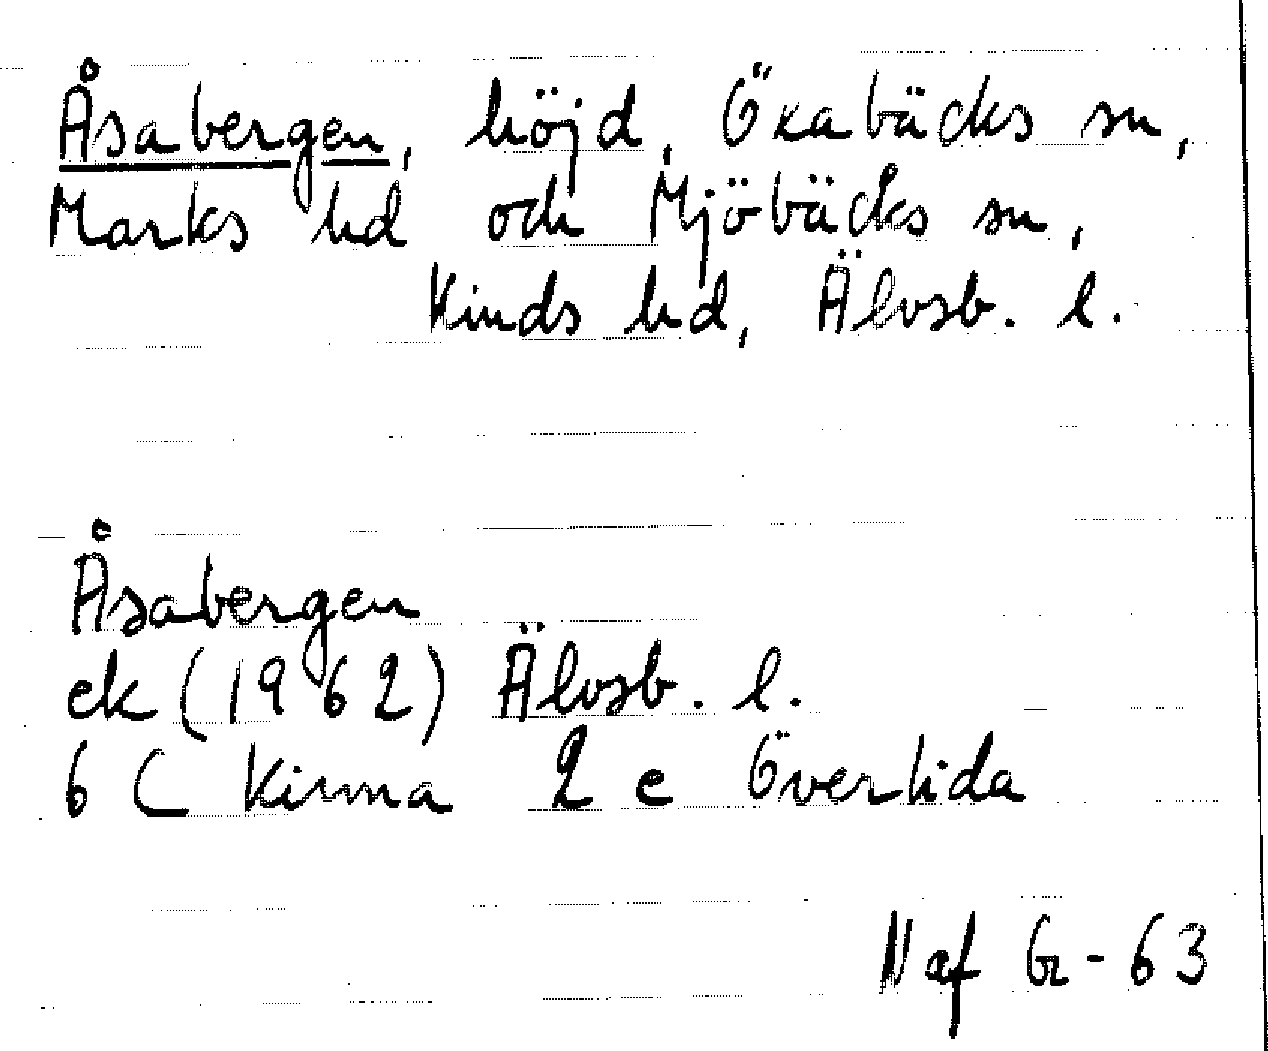 Åsabergen, höjd, Öxabäcks sn,
Marks hd och Mjöbäcks sn,
Kinds hd, Älvsb. l.
Åsabergen
ek (1962) Älvsb. l.
6 C Kinna 2 e Överlida
Naf Gr-63